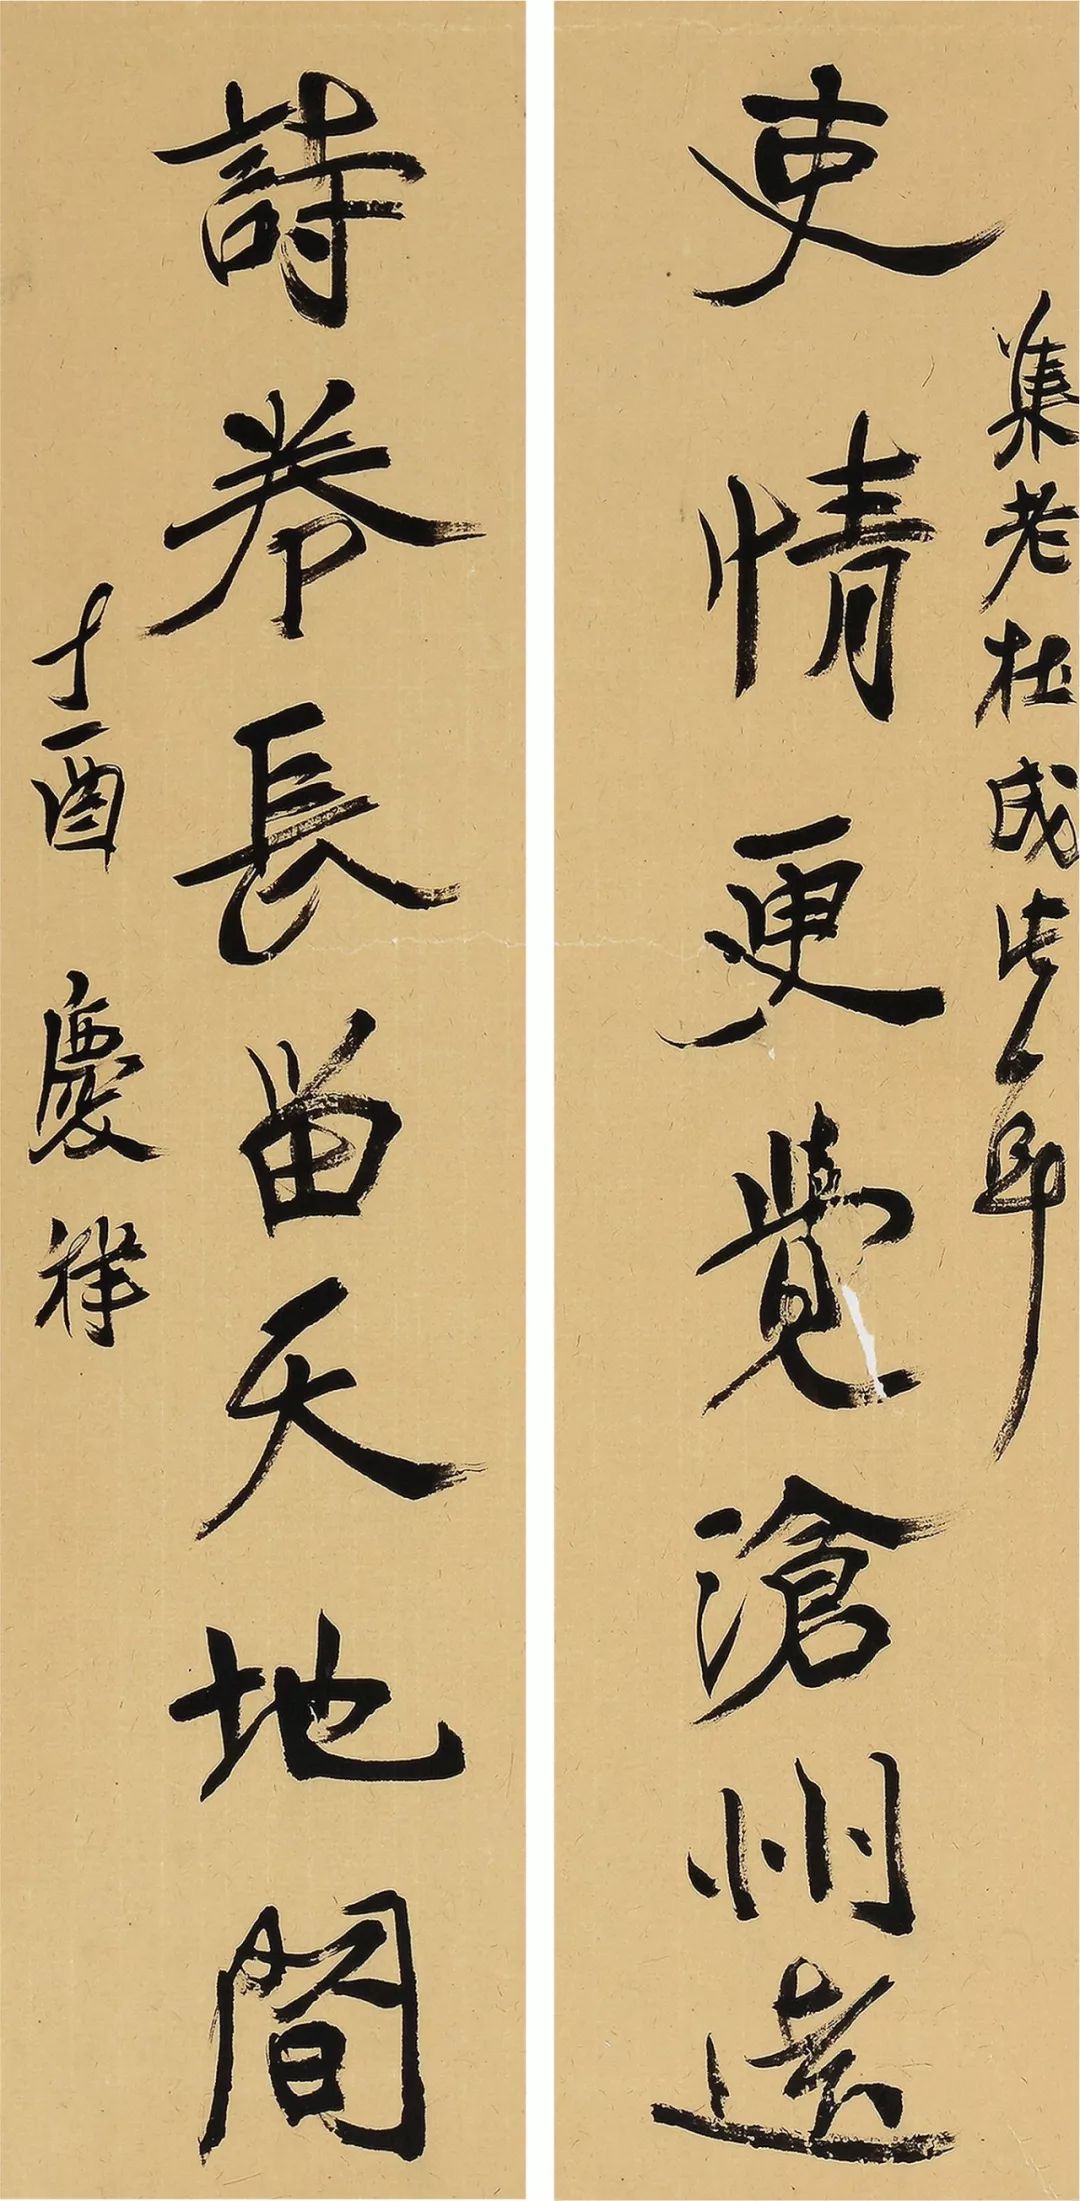 集老杜成
吏情更覺滄州遠
詩卷長留天地間
丁酉慶祥